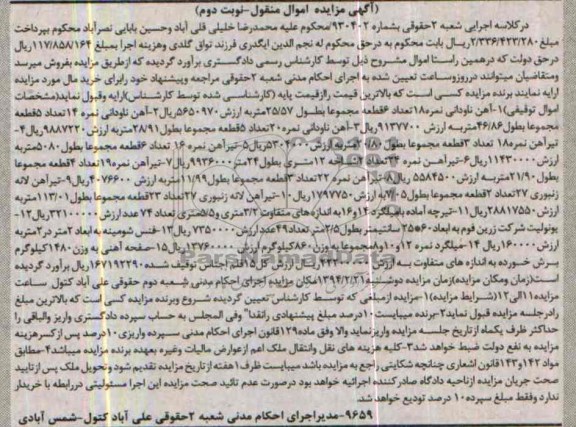 (آگهی مزایده اموال منقول-نوبت دوم)
درکلاسه اجرایی شعبه ۲حقوقی بشماره ۹۳۰۴۰۲محکوم علیه محمدرضا خلیلی قلی آباد وحسین بابایی نصرآباد محکوم بپرداخت
مبلغ ۲/۳۳۶/۴۲۳/۲۸۰ریال بابت محکوم به درحق محکوم له نجم الدین ایگدری فرزند تواق گلدی وهزینه اجرا بمبلغ ۱۱۷/۸۵۸/۱۶۴ریال
درحق دولت که درهمین راستا اموال مشروح ذیل توسط کارشناس رسمی دادگستری برآورد گردیده که ازطریق مزایده بفروش میرسد
ومتقاضیان میتوانند درروزوساعت تعیین شده به اجرای احکام مدنی شعبه ۲حقوقی مراجعه وپیشنهاد خود رابرای خرید مال مورد مزایده
ارایه نمایند برنده مزایده کسی است که بالاترین قیمت راازقیمت پایه (کارشناسی شده توسط کارشناس)ارایه وقبول نماید(مشخصات
اموال توقیفی)۱-آهن ناودانی نمره۱۸تعداد ۶قطعه مجموعا بطول ۲۵/۵۷متربه ارزش ۵۶۵۰۹۷۰ریال۲-آهن ناودانی نمره ۱۴تعداد ۵قطعه
مجموعا بطول۴۶/۸۶متربه ارزش ۹۱۳۷۷۰۰ریال۳-آهن ناودانی نمره۲۰تعداد ۵قطعه مجموعا بطول۲۸/۹۱متربه ارزش ۹۸۸۷۲۲۰ریال۴-
تیرآهن نمره۱۸ تعداد ۳قطعه مجموعا بطول ۲۰/۸۰متربه ارزش ۵۳۰۴۰۰۰ریال۵-تیرآهن نمره ۱۶ تعداد ۶قطعه مجموعا بطول۵۰۸۰متربه
ارزش۱۱۴۳۰۰۰۰ریال۶-تیرآهن نمره ۲۴تعداد ۲شاخه ۱۲متری بطول۲۴متر۹۹۳۶۰۰۰ریال۷-تیرآهن نمره۱۹تعداد ۴قطعه مجموعا
بطول۲۱/۹۰متربه ارزش ۵۵۸۴۵۰۰ ریال۸-آهن نمره ۲۲تعداد۳قطعه مجموعا بطول۱۱/۹۹متربه ارزش ۴۰۷۶۶۰۰ریال۹-تیرآهن لانه
زنبوری ۲۷تعداد ۲قطعه مجموعا بطول۷/۰۵به ارزش ۱۷۹۷۷۵۰ریال۱۰-تیرآهن لانه زنبوری ۲۷تعداد ۲۳قطعه مجموعا بطول۱۱۳/۰۱متربه
ارزش۲۸۸۱۷۵۵۰ریال۱۱-تیرچه آماده بامیلگرد۱۴و۱۶به اندازه های متفاوت ۳/۲متری و۵/۵متری تعداد ۷۴ عدد ارزش۳۲۱۰۰۰۰۰ریال۱۲-
یونولیت شرکت زرین فوم به ابعاد ۶۰*۲۵ سانتیمتر بطول۲/۵مترتعداد۴۹عددارزش ۷۳۵۰۰۰۰ریال۱۳-فنس شومینه به ابعاد ۲متر در۲متربه
ارزش۱۶۰۰۰۰ریال ۱۴-میلگرد نمره ۱۲و۱۰و۸مجموعا به وزن ۸۶۰کیلوگرم ارزش ۱۳۷۶۰۰۰۰ ریال۱۵-صفحه آهنی به وزن ۱۴۸۰کیلوگرم
برش خورده به اندازه های متفاوت به ارزش ریال ارزش کل ۱۵قلم اجناس توقیف شده۱۶۷۱۹۲۲۹۰ریال برآورد گردیده
است(زمان ومکان مزایده)زمان مزایده دوشنبه ۱۳۹۴/۲/۲۱مکان مزایده اجرای احکام مدنی شعبه دوم حقوقی علی آباد کتول ساعت
مزایده ۱۱الی۱۲(شرایط مزایده)۱-مزایده ازمبلغی که توسط کارشناس تعیین گردیده شروع وبرنده مزایده کسی است که بالاترین مبلغ
رادرجلسه مزایده قبول نماید۲-برنده میبایست ۱۰درصد مبلغ پیشنهادی رانقدا" وفی المجلس به حساب سپرده دادگستری واریز والباقی را
حداکثر ظرف یکماه ازتاریخ جلسه مزایده واریزنماید والا وفق ماده۱۲۹قانون اجرای احکام مدنی سپرده واریزی ۱۰درصد پس ازکسرهزینه
مزایده به نفع دولت ضبط خواهد شد۳-کلیه هزینه های نقل وانتقال ملک اعم ازعوارض مالیات وغیره بعهده برنده مزایده میباشد۴-مطابق
مواد ۱۴۲و۱۴۳قانون اشعاری چنانچه شکایتی راجع به مزایده باشد میبایست ظرف ۱هفته ازتاریخ مزایده تقدیم شود وتحویل ملک پس ازتایید
صحت جریان مزایده ازناحیه دادگاه صادرکننده اجرائیه خواهد بود درصورت عدم تائید صحت مزایده این اجرا مسئولیتی دررابطه با خریدار
ندارد وفقط مبلغ سپرده۱۰ درصد تودیع خواهد شد.
۹۶۵۹-مدیراجرای احکام مدنی شعبه ۲حقوقی علی آباد کتول-شمس آبادی